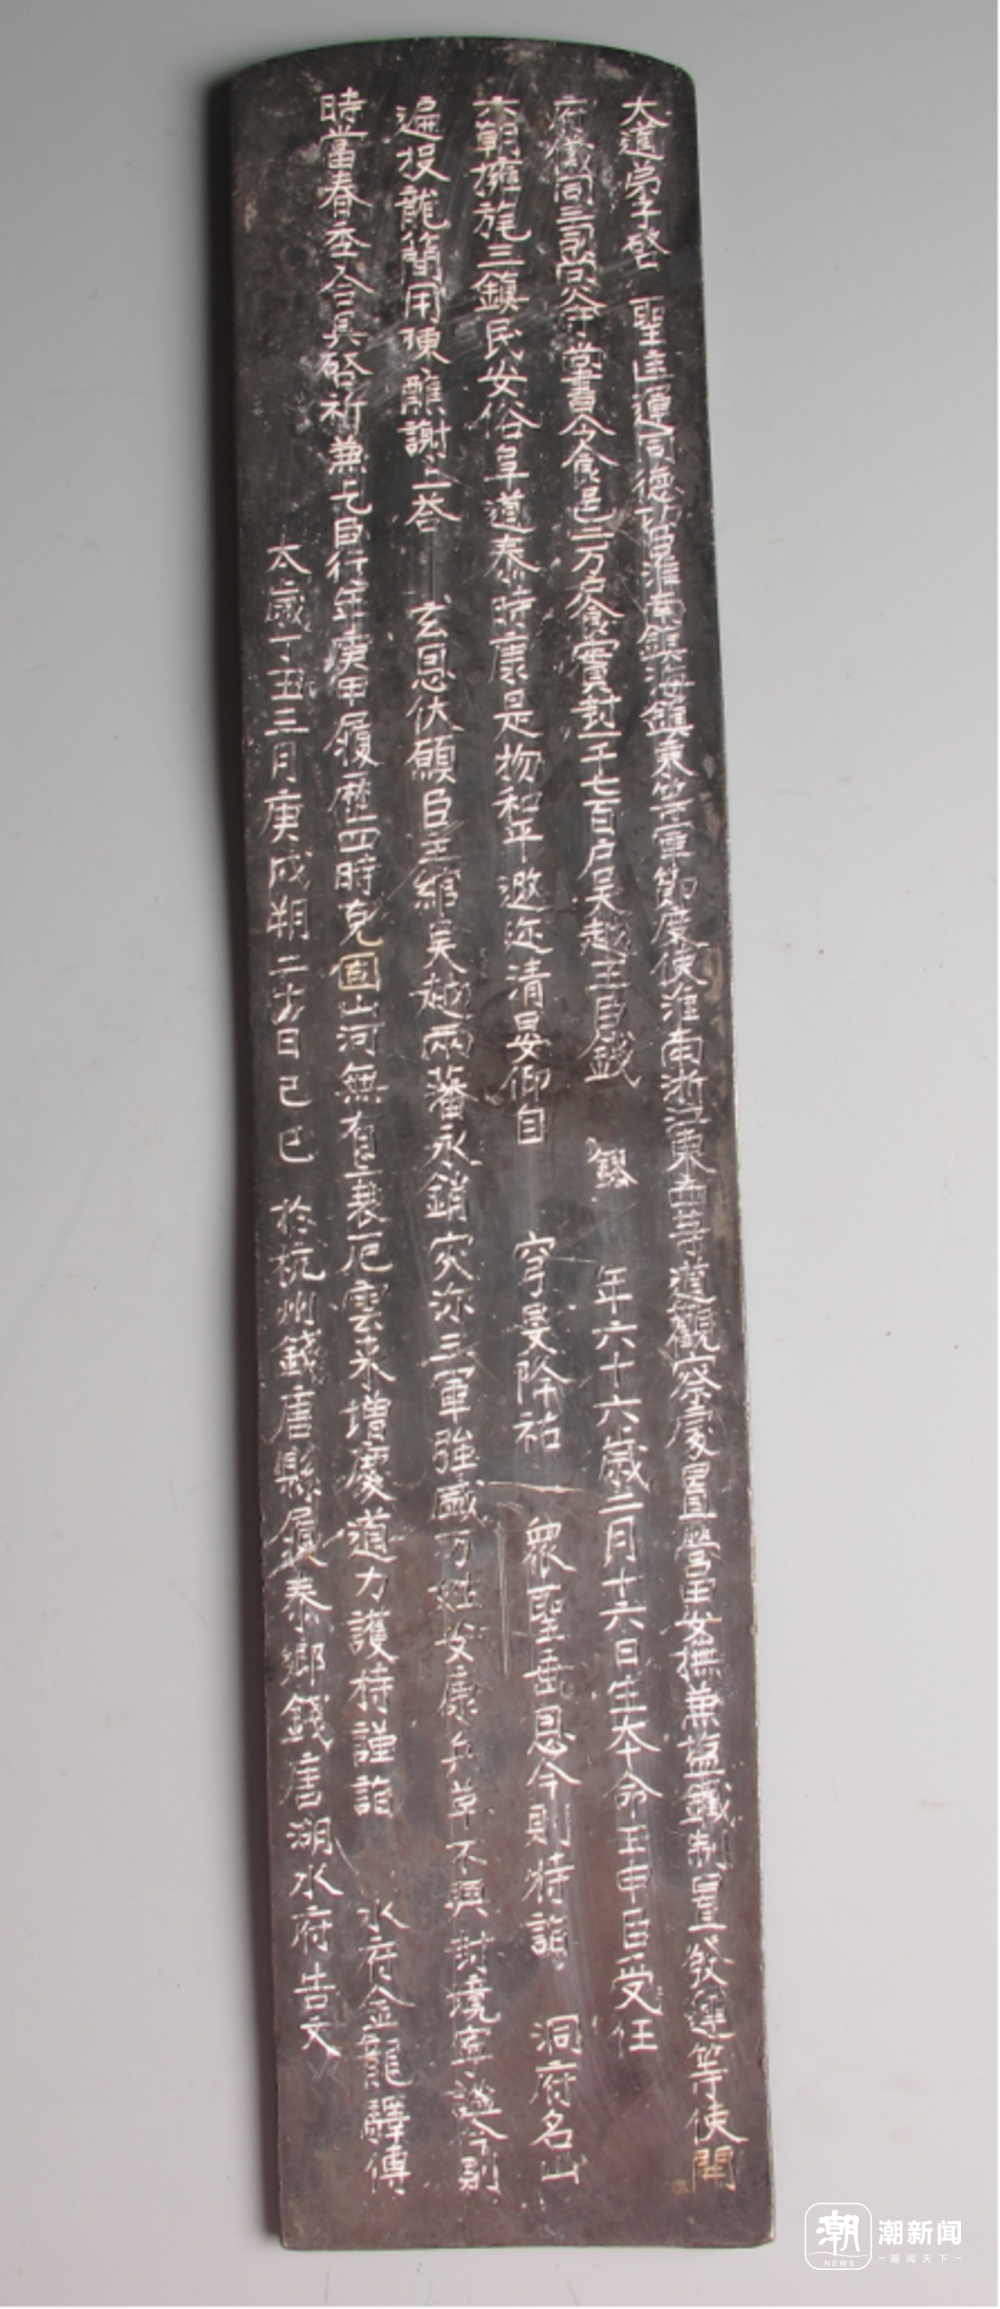 大道弟子啓 聖匡運同德功臣淮南鎮海鎮東等軍節度使淮南浙江東西等道觀察處置營田安撫兼塩鐵制置發運等使開
府儀同三司尚父守尚書令食邑二万戶食實封一千七百戶吳越王臣錢 鏐 年六十六歲二月十六日生本命壬申臣受任
六朝擁旄三鎮民安俗阜道泰時康是物和平遐迩清晏仰自 穹旻降祐 衆聖垂恩今則特詣 洞府名山
遍投龍簡用陳醮謝上荅 玄恩伏願臣主綰吳越兩藩永銷灾沴三軍強盛万姓安康兵革不興封境寧謐今則
時當春季合具啓祈兼乞臣行年庚申履歷四時克固山河無有衰厄雲來增慶道力護持謹詣 水府金龍驛傳
太歲丁丑三月庚戌朔二十日己巳 於杭州錢唐縣履泰鄉錢唐湖水府告文
潮 NEWS
潮新闻
潮闻天下